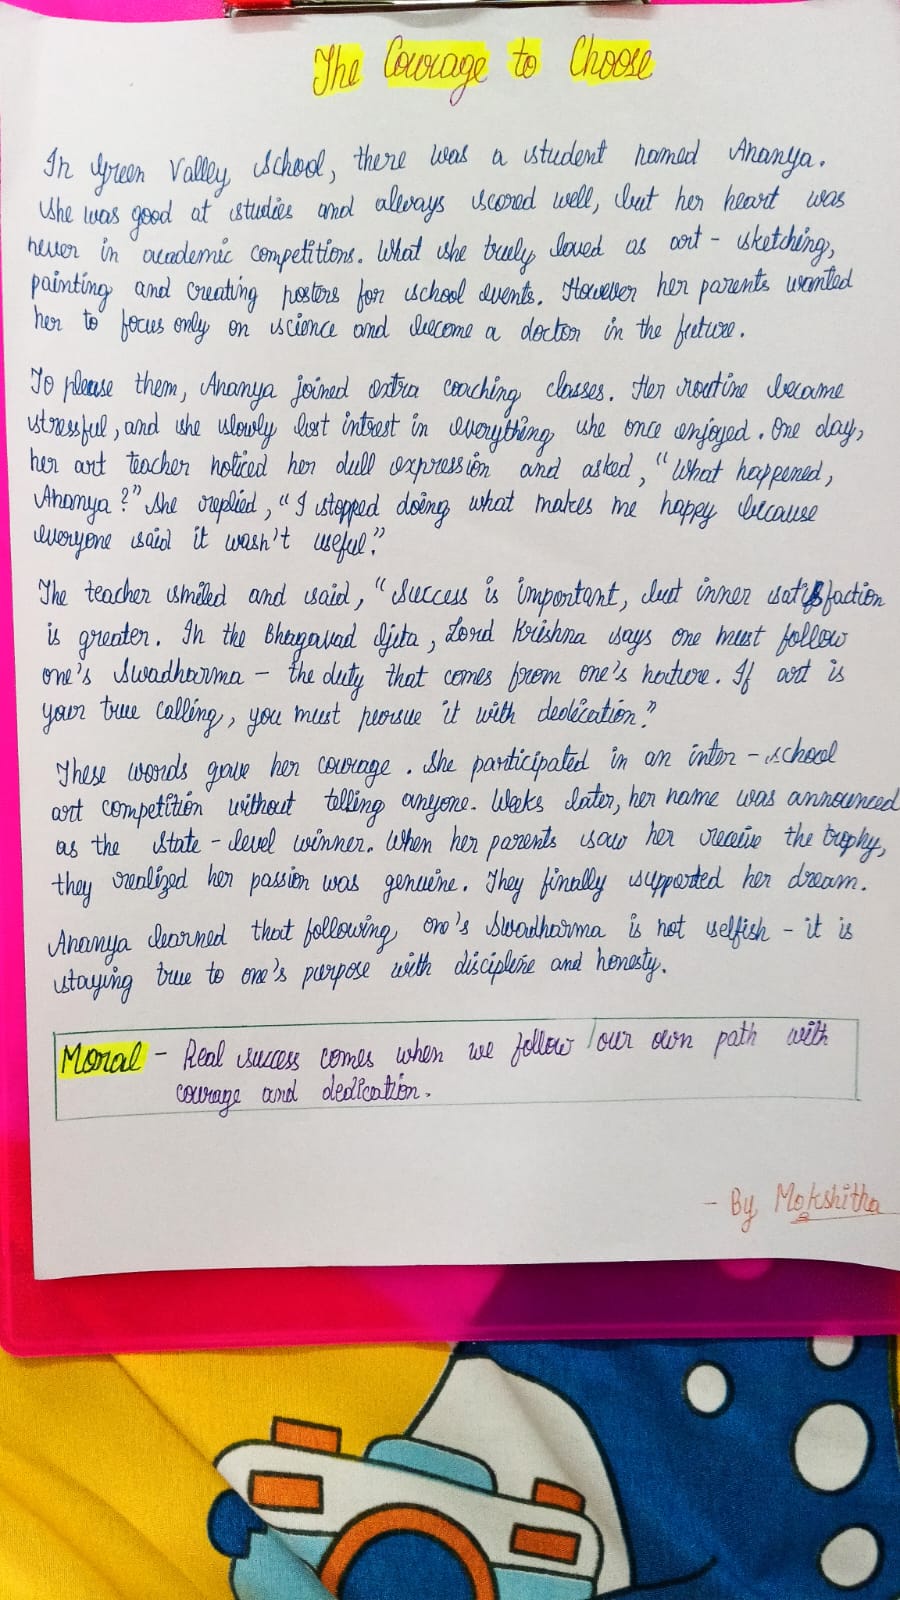 The Courage to Choose
In Green Valley School, there was a student named Ananya.
She was good at studies and always scored well, but her heart was
never in academic competitions. What she truly loved as art - sketching,
painting and creating posters for school events. However her parents wanted
her to focus only on science and become a doctor in the future.
To please them, Ananya joined extra coaching classes. Her routine became
stressful, and she slowly lost intrest in everything she once enjoyed. One day,
her art teacher noticed her dull expression and asked, "What happened,
Ananya?" She replied, "I stopped doing what makes me happy because
everyone said it wasn't useful."
The teacher smiled and said, "Success is important, but inner satisfaction
is greater. In the Bhagavad Gita, Lord Krishna says one must follow
one's Swadharma - the duty that comes from one's nature. If art is
your true calling, you must peorsue it with dedication."
These words gave her courage. She participated in an inter - school
art competition without telling anyone. Weeks later, her name was announced
as the State - level winner. When her parents saw her receive the trophy,
they realized her passion was genuine. They finally supported her dream.
Ananya learned that following one's Swadharma is not selfish - it is
staying true to one's purpose with discipline and honesty.
Moral - Real success comes when we follow our own path with
courage and dedication.
- By Mokshitha